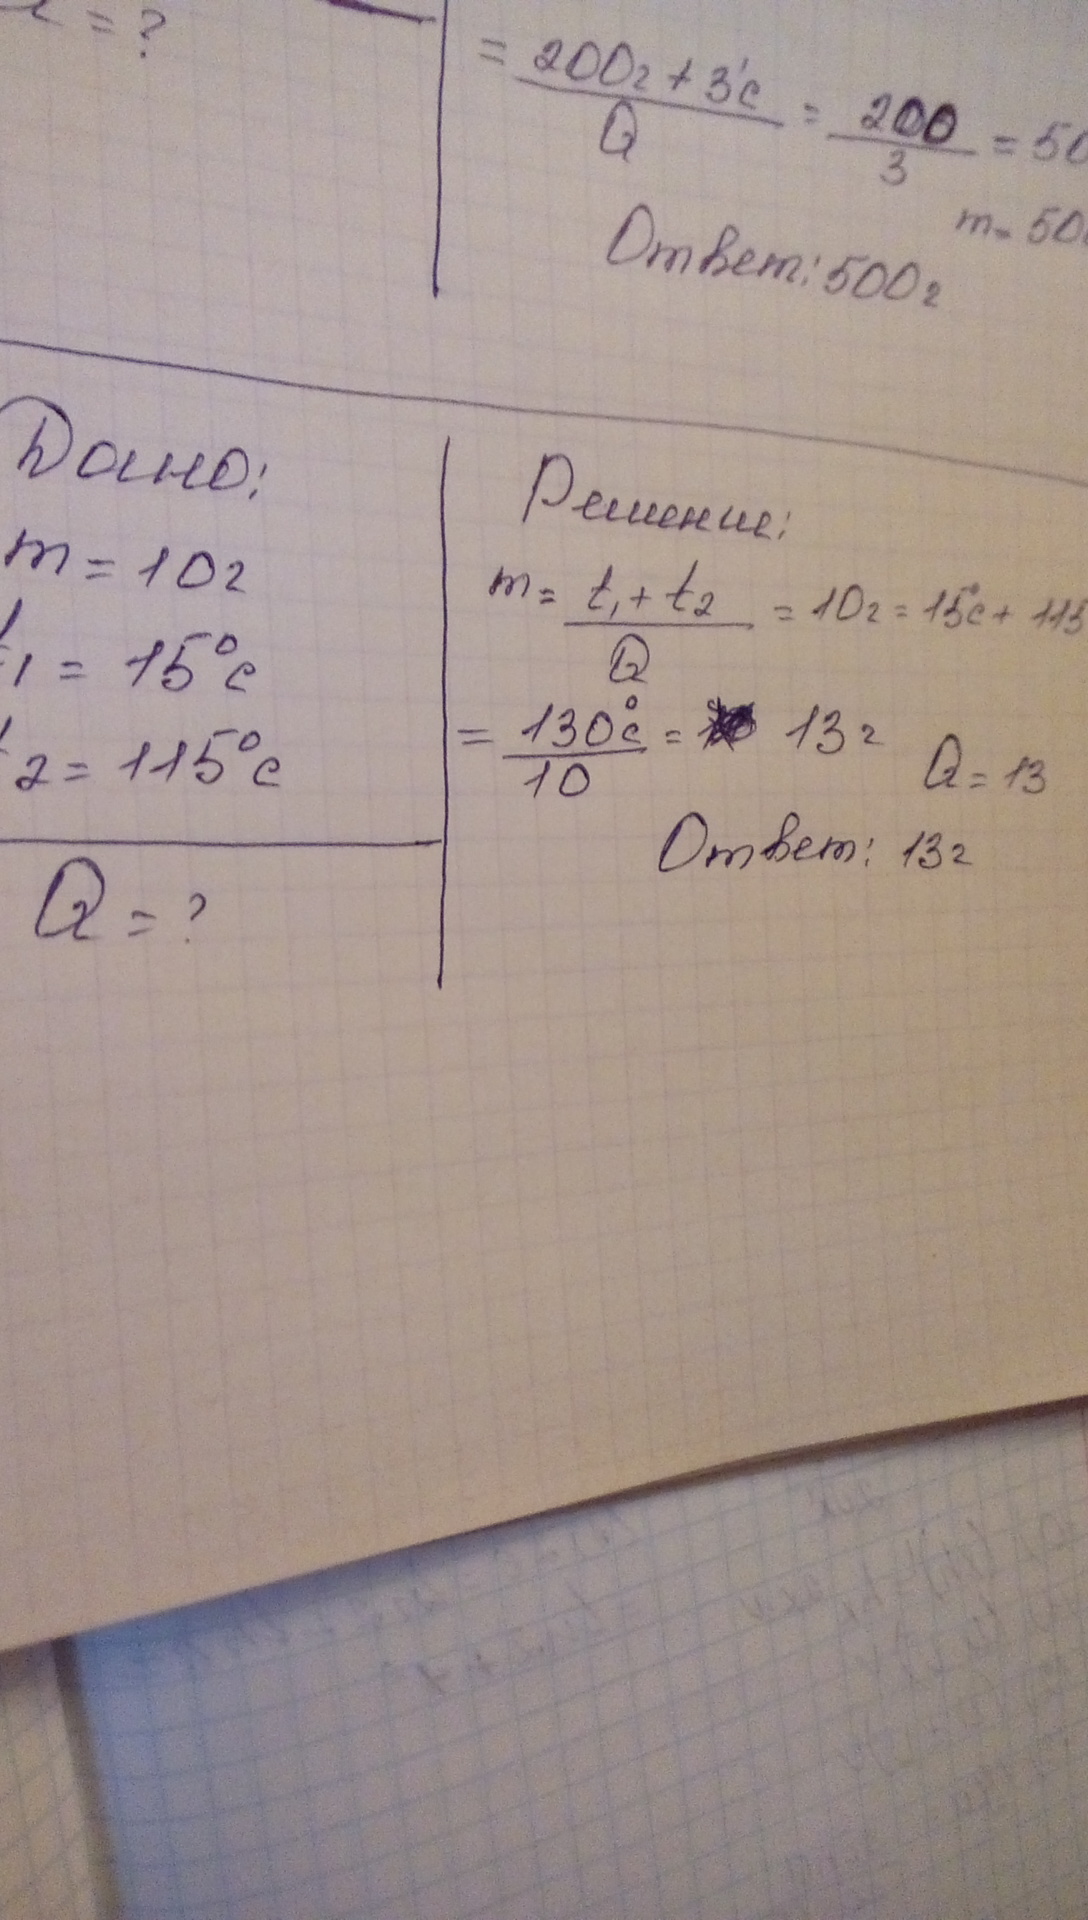 = ?
= 200г + 3°с / Q = 200 / 3 = 50
m = 50
Ответ: 500г
Дано:
m = 10г
t₁ = 15°с
t₂ = 115°с
Q = ?
Решение:
m = t₁ + t₂ / Q = 10г = 15°с + 115
= 130°с / 10 = 13г
Q = 13
Ответ: 13г